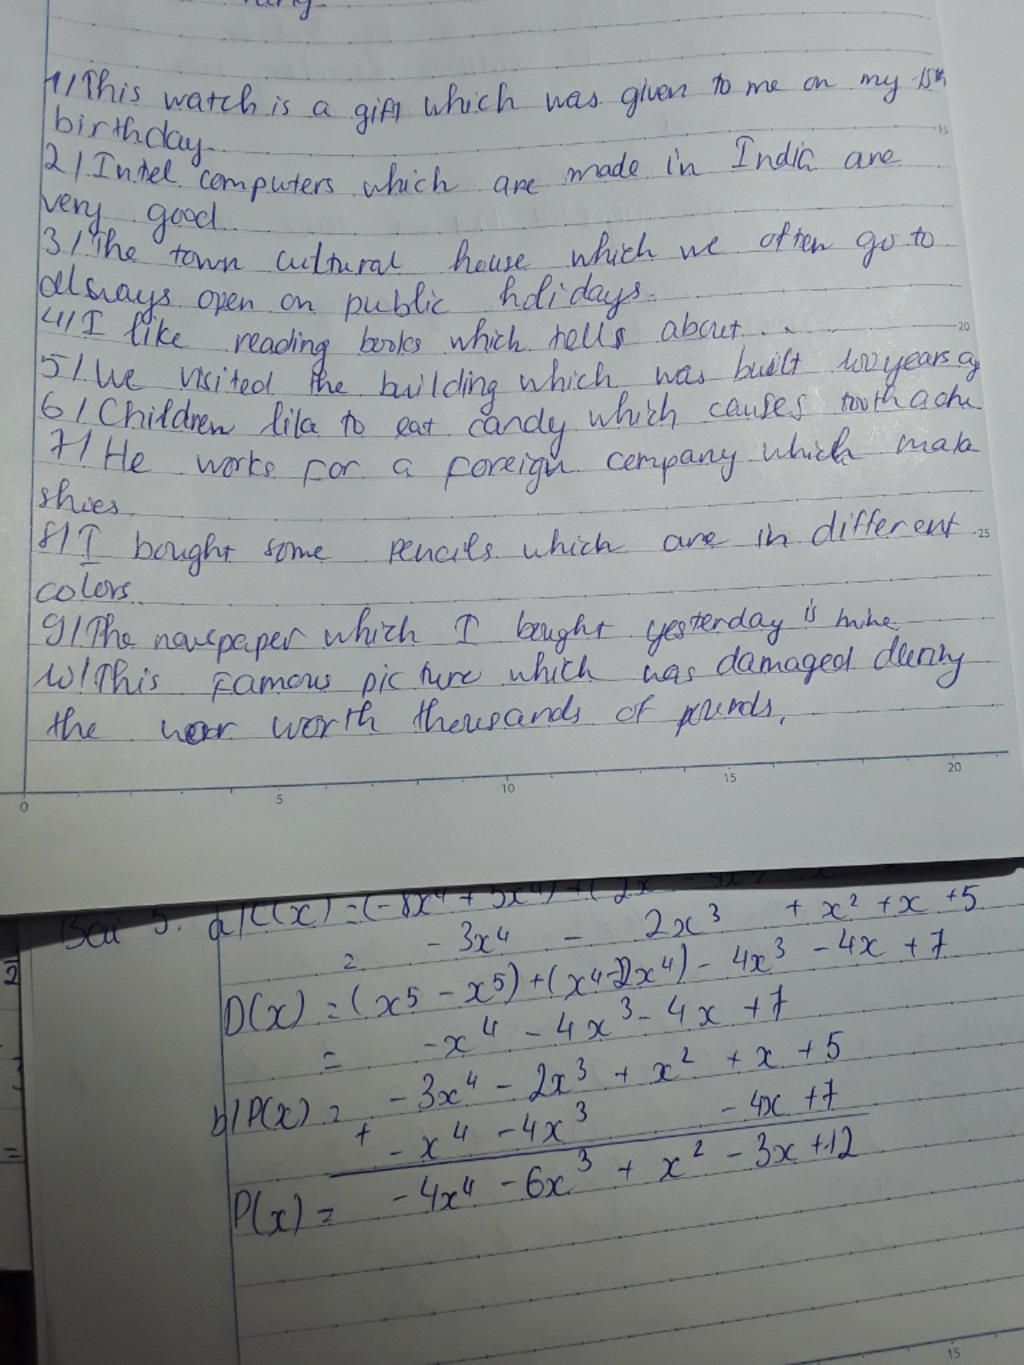 1/ This watch is a gift which was given to me on my 15th
birthday.
2/ Intel computers which are made in India are
very good
3/ The town cultural house which we often go to
always open on public holidays.
4/ I like reading books which tells about...
5/ We visited the building which was built 100 years ag
6/ Children like to eat candy which causes toothache
7/ He works for a foreign company which make
shoes.
8/ I bought some pencils which are in different
colors.
9/ The newspaper which I bought yesterday is mine.
10/ This famous picture which was damaged during
the war worth thousands of pounds.
0 5 10 15 20
15
20
25
Bài 5. a/ C(x) = (-8x⁴ + 5x⁴) + (2x
= -3x⁴ - 2x³ + x² + x + 5
D(x) = (x⁵ - x⁵) + (x⁴ - 2x⁴) - 4x³ - 4x + 7
= -x⁴ - 4x³ - 4x + 7
b/ P(x) = -3x⁴ - 2x³ + x² + x + 5
+ -x⁴ - 4x³ - 4x + 7
P(x) = -4x⁴ - 6x³ + x² - 3x + 12
15